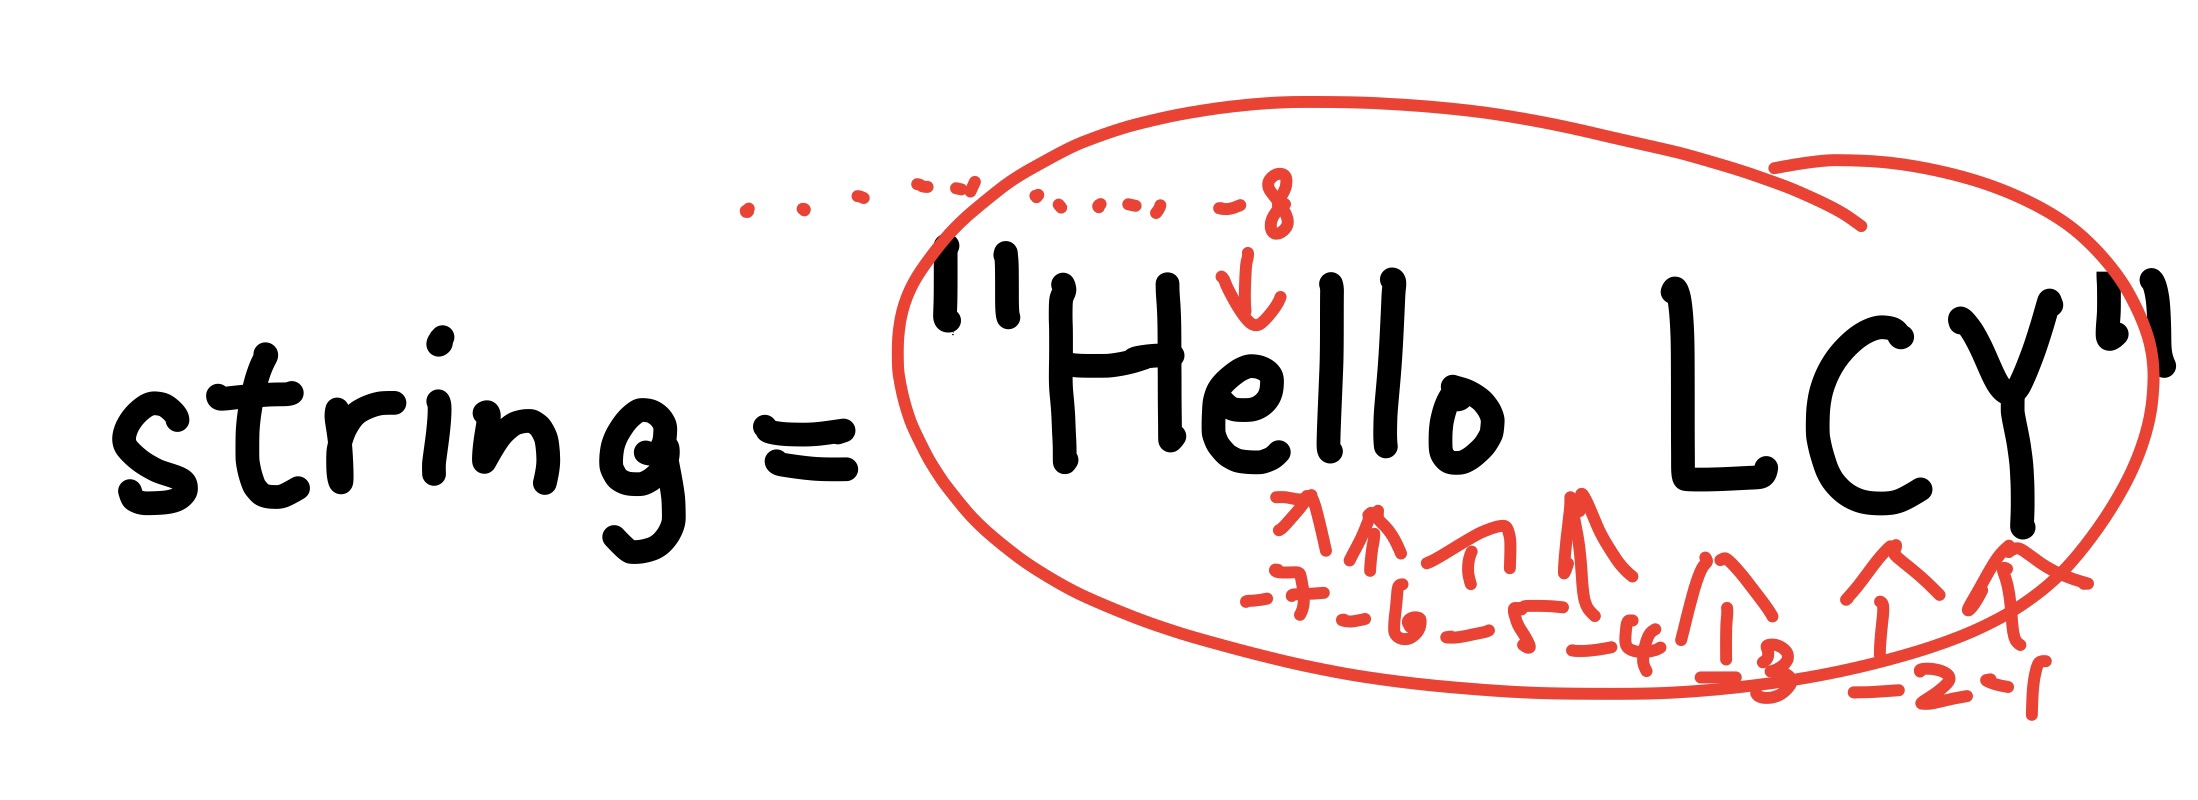 -8
string = "Hello LCY"
-7 -6 -5 -4 -3 -2 -1